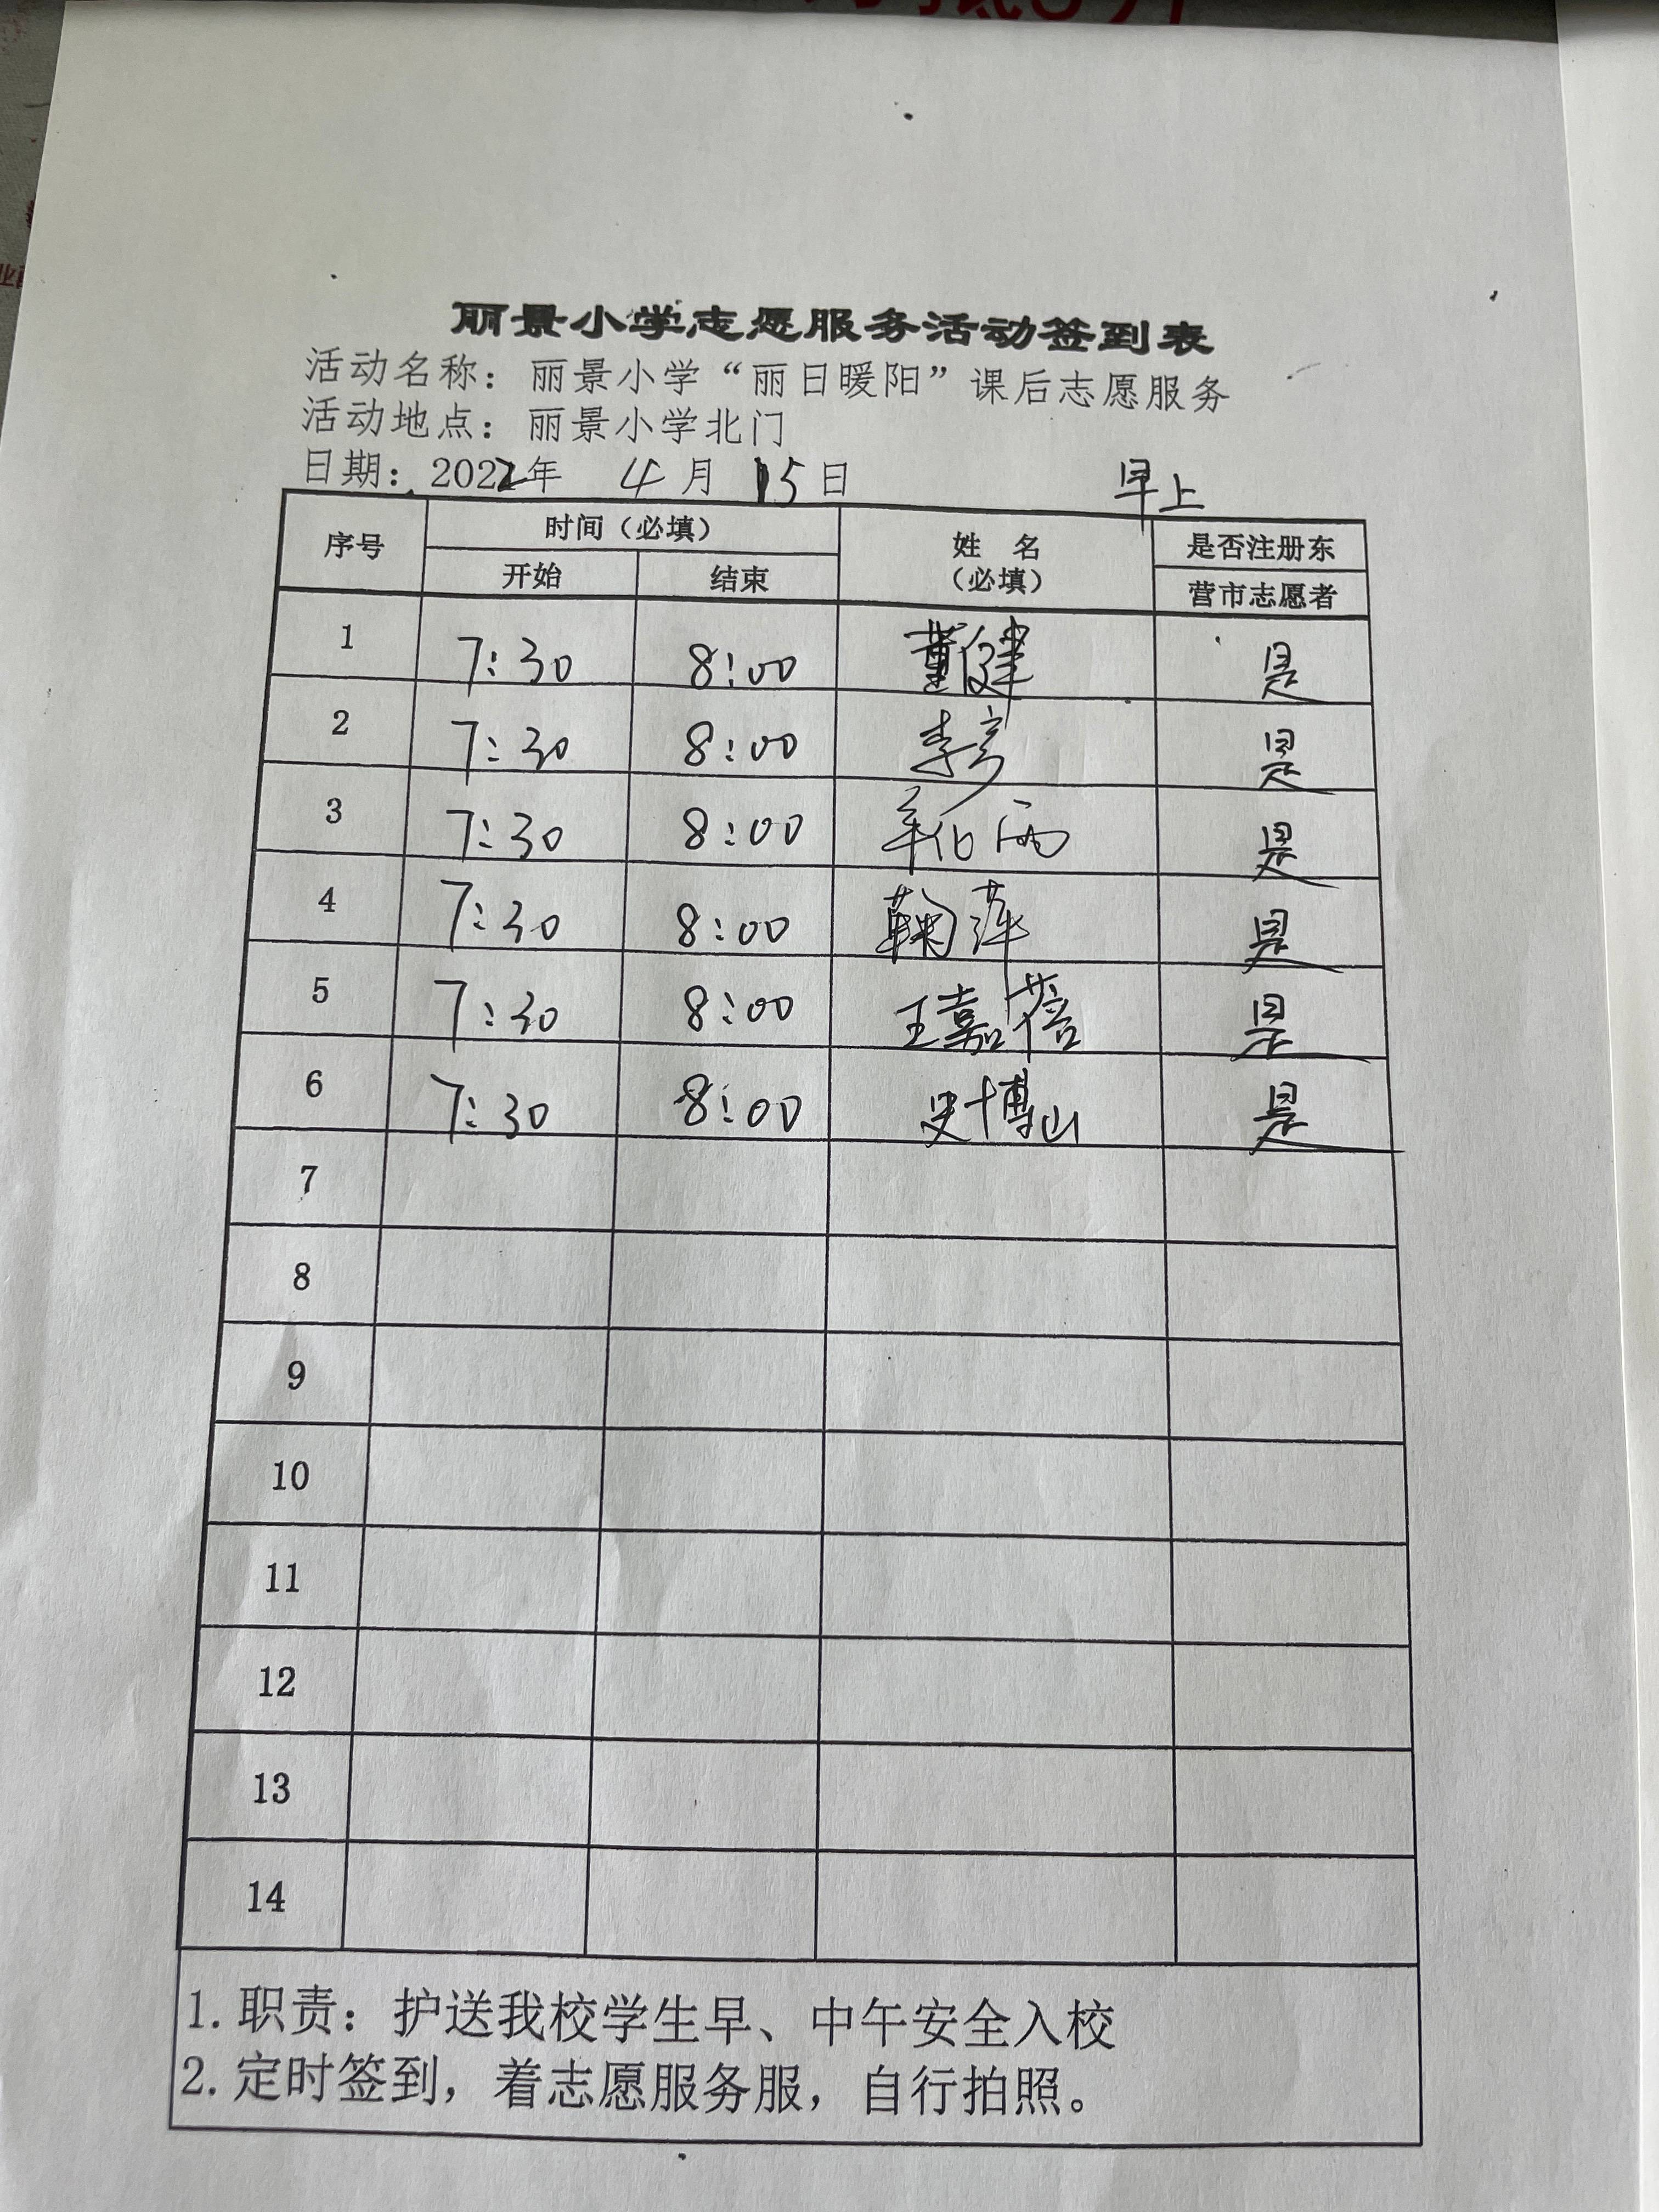 丽景小学志愿服务活动签到表
活动名称：丽景小学“丽日暖阳”课后志愿服务
活动地点：丽景小学北门
日期：2022年 4月 15日 早上
序号 时间（必填） 姓 名（必填） 是否注册东营市志愿者
开始 结束
1 7:30 8:00 董健 是
2 7:30 8:00 李彦 是
3 7:30 8:00 是
4 7:30 8:00 鞠萍 是
5 7:30 8:00 王嘉蓓 是
6 7:30 8:00 史博山 是
7
8
9
10
11
12
13
14
1.职责：护送我校学生早、中午安全入校
2.定时签到，着志愿服务服，自行拍照。